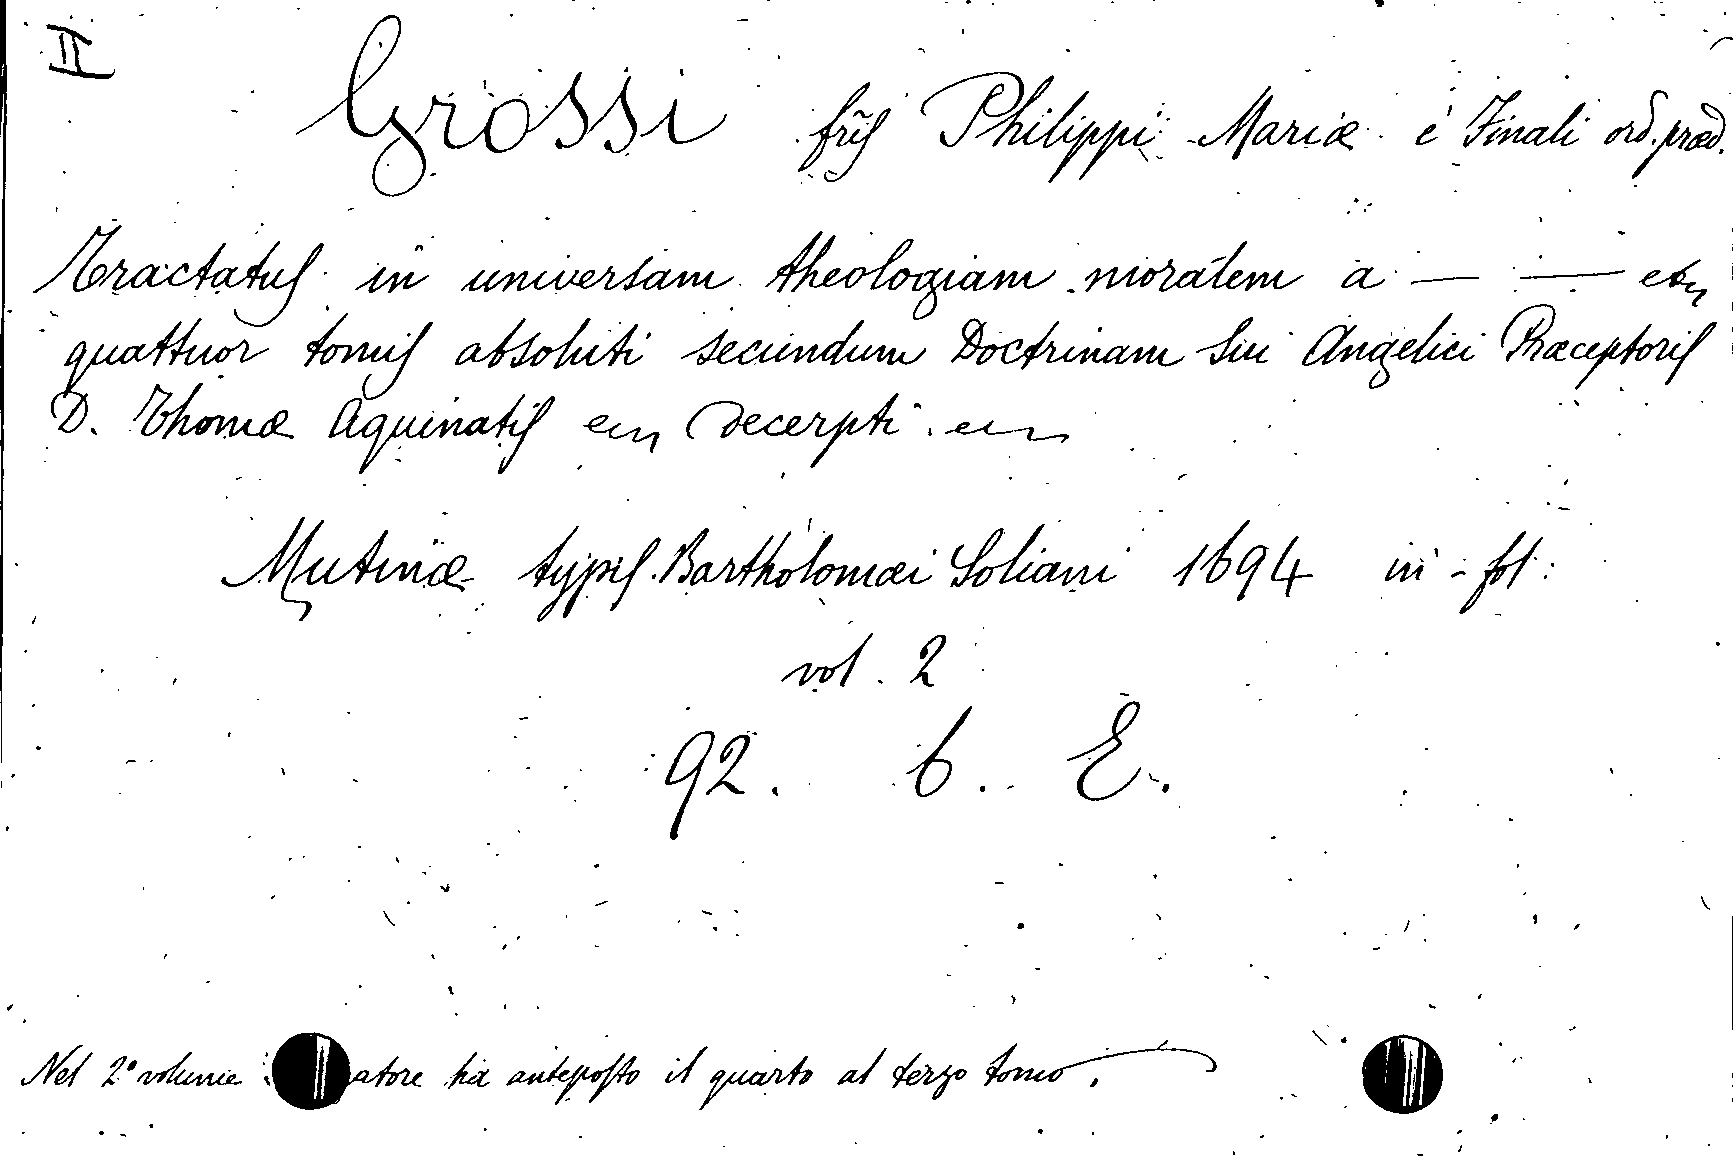 II
Grossi fr̃is Philippi Mariæ e Finali ord. præd.
Tractatus in universam theologiam moralem a — — etc
quattuor tomis absoluti secundum Doctrinam sui Angelici Præceptoris
D. Thomæ Aquinatis etc decerpti etc
Mutinæ typis Bartholomæi Soliani 1694 in-fol:
vol. 2
92. 6. E.
Nel 2º volume atore ha anteposto il quarto al terzo tomo.